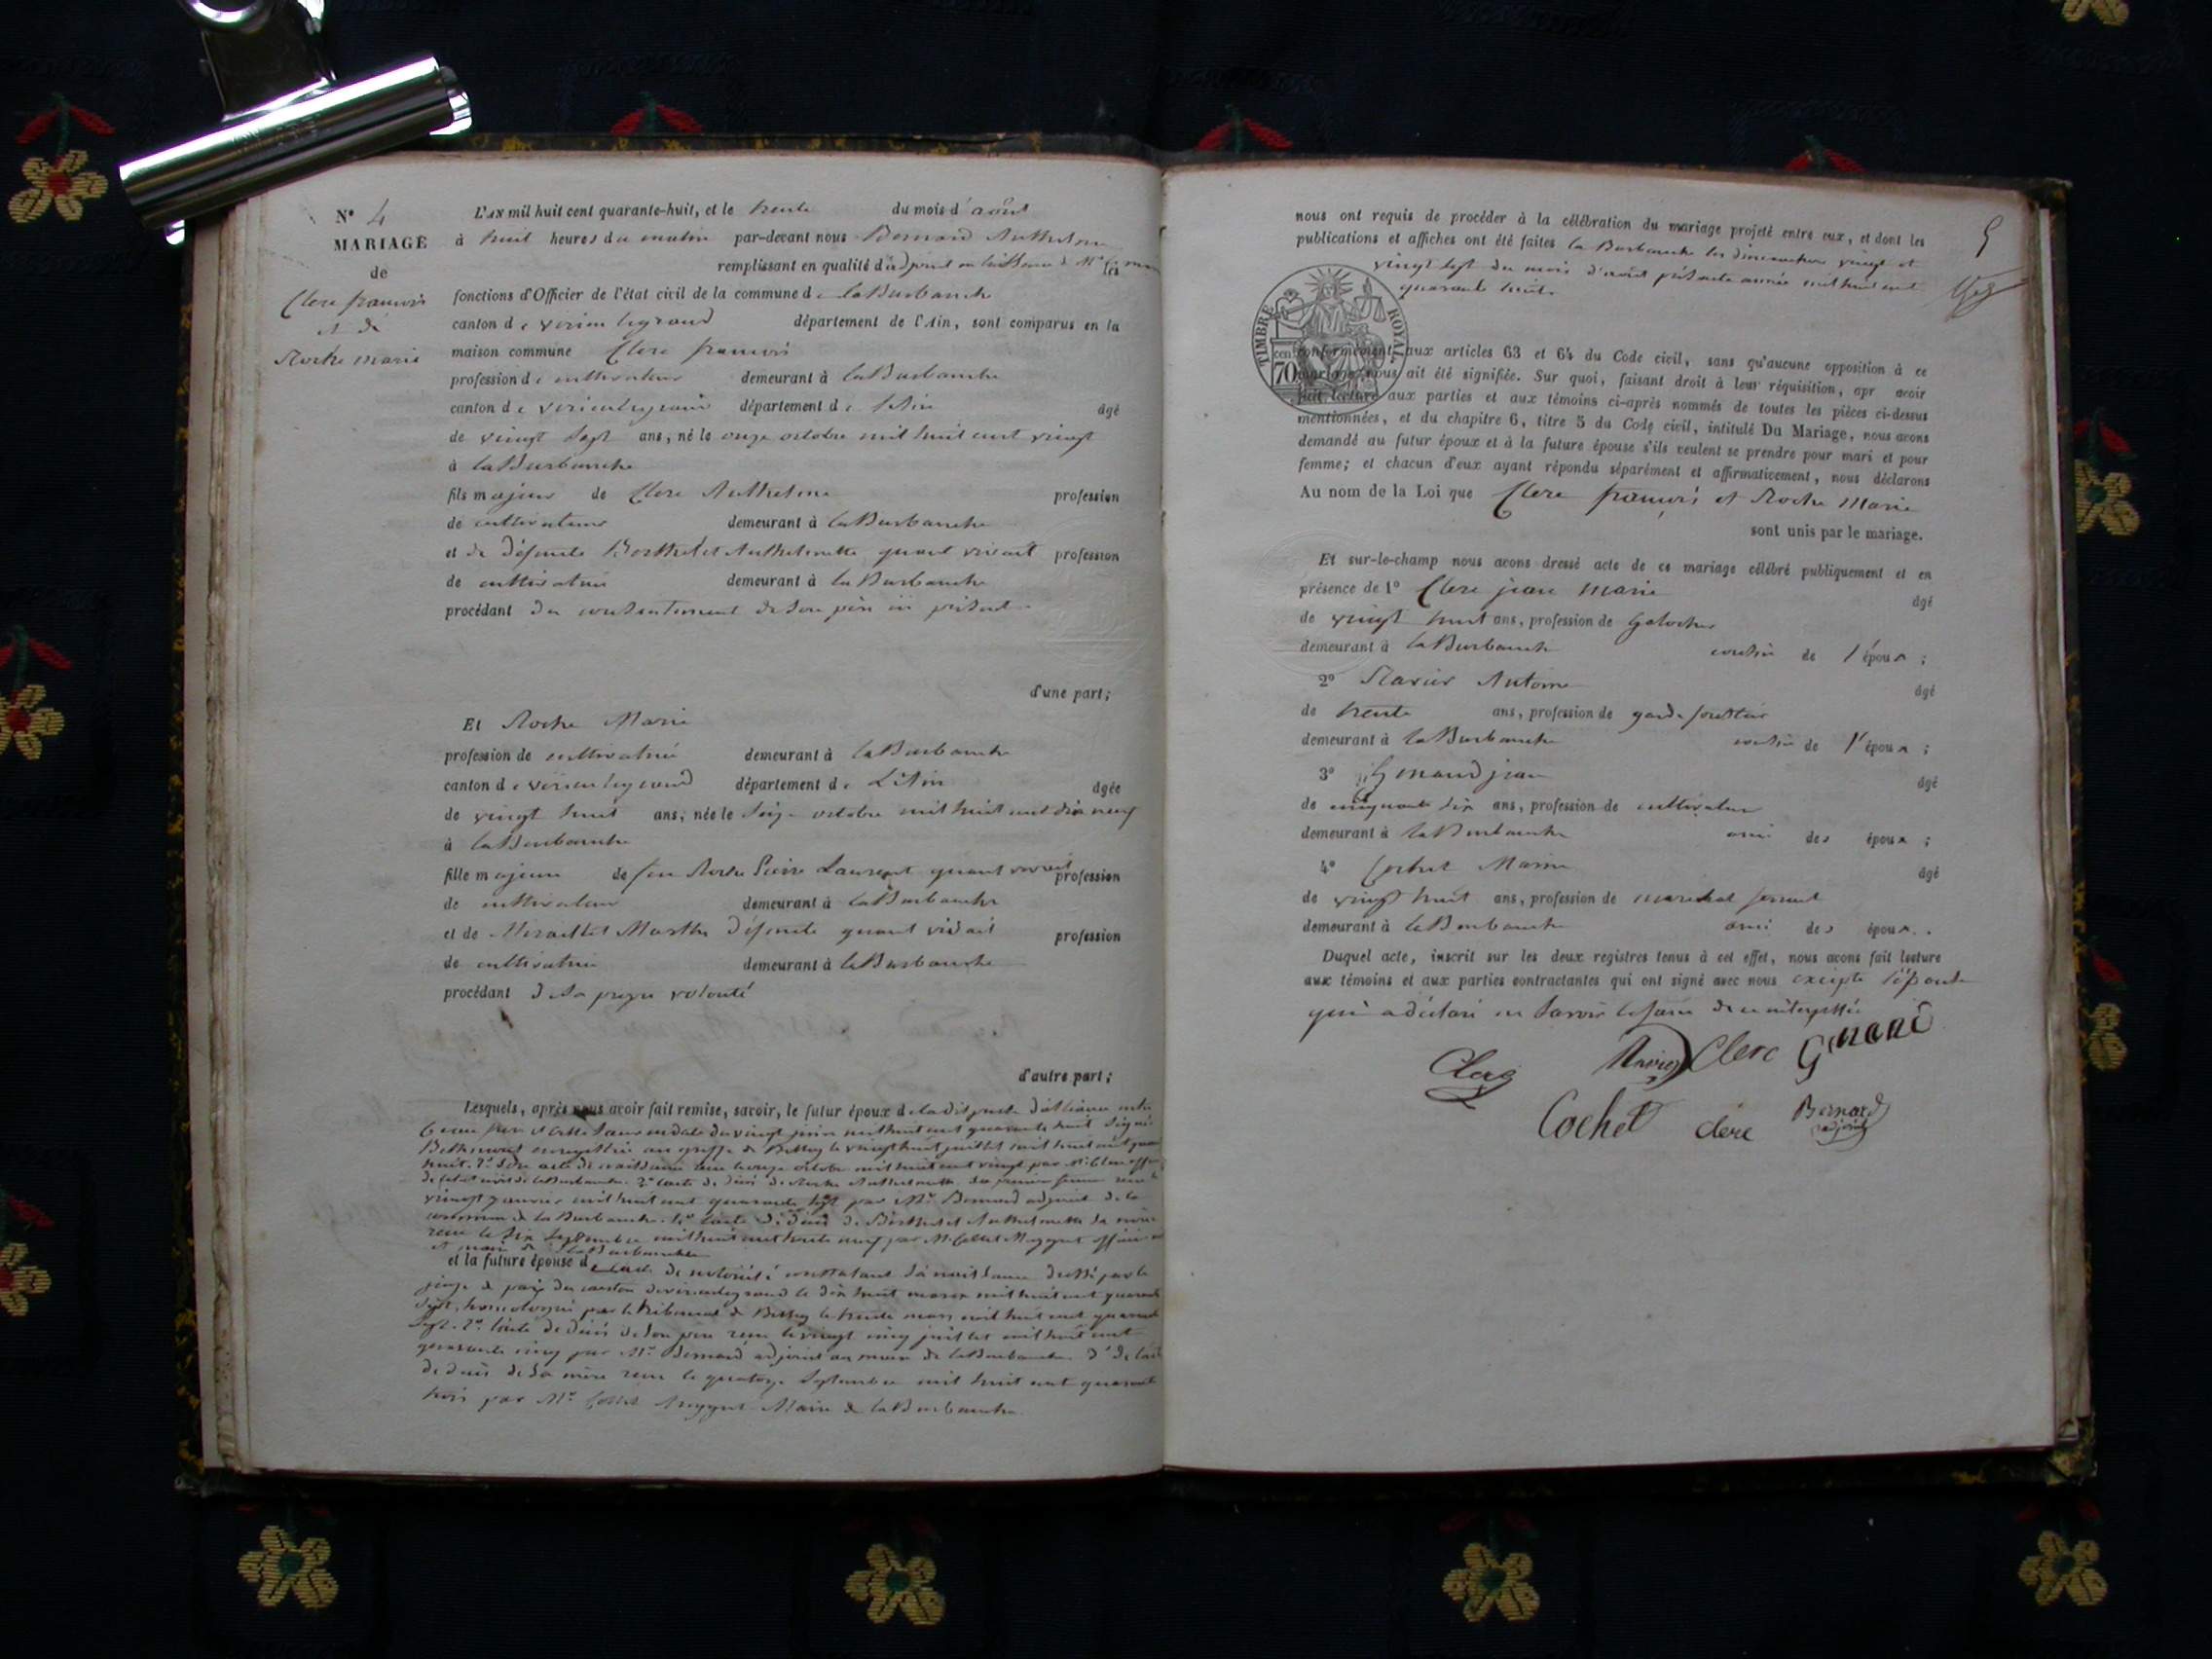 N° 4
MARIAGE
de
Clerc françois
et de
Roche marie
L'AN mil huit cent quarante-huit, et le trente du mois d'août
à huit heures du matin par-devant nous Bernard Anthelme
remplissant en qualité d'adjoint en l'absence de Mr le maire les
fonctions d'Officier de l'état civil de la commune de la Burbanche
canton de virieu legrand département de l'Ain, sont comparus en la
maison commune Clerc françois
profession de cultivateur demeurant à la Burbanche
canton de virieu legrand département de l'Ain âgé
de vingt sept ans, né le onze octobre mil huit cent vingt
à la Burbanche
fils majeur de Clerc Anthelme profession
de cultivateur demeurant à la Burbanche
et de défunte Berthelet Anthelmette quand vivait profession
de cultivatrice demeurant à la Burbanche
procédant du consentement de son père ici présent
d'une part;
Et Roche Marie
profession de cultivatrice demeurant à la Burbanche
canton de virieu legrand département de L'Ain âgée
de vingt huit ans, née le seize octobre mil huit cent dix neuf
à la Burbanche
fille majeure de feu Roche Pierre Laurent quand vivait profession
de cultivateur demeurant à la Burbanche
et de Miraillet Marthe défunte quand vivait profession
de cultivatrice demeurant à la Burbanche
procédant de sa propre volonté
d'autre part;
Lesquels, après nous avoir fait remise, savoir, le futur époux de la dispense d'alliance entre
beau frère et belle soeur en date du vingt juin mil huit cent quarante huit signé
Bethmont enregistrée au greffe de Belley le vingt huit juillet mil huit cent quarante
huit. 2° Son acte de naissance reçu le onze octobre mil huit cent vingt par Mr Clerc officier
de l'état civil de la Burbanche. 3° l'acte de décès de Roche Anthelmette sa première femme reçu le
vingt janvier mil huit cent quarante sept par Mr Bernard adjoint de la
commune de la Burbanche. 4° l'acte de décès de Berthelet Anthelmette sa mère
reçu le six septembre mil huit cent trente neuf par Mr Collet Meygret officier
et maire de la Burbanche
et la future épouse de l'acte de notoriété constatant sa naissance dressé par le
juge de paix du canton de virieu legrand le dix huit mars mil huit cent quarante
sept, homologué par le tribunal de Belley le trente mars mil huit cent quarante
sept. 2° l'acte de décès de son père reçu le vingt cinq juillet mil huit cent
quarante cinq par Mr Bernard adjoint au maire de la Burbanche 3° de l'acte
de décès de sa mère reçu le quatorze septembre mil huit cent quarante
trois par Mr Collet Meygret Maire de la Burbanche.
5
nous ont requis de procéder à la célébration du mariage projeté entre eux, et dont les
publications et affiches ont été faites la Burbanche les dimanches vingt et
vingt sept du mois d'août présente année mil huit cent
quarante huit.
TIMBRE ROYAL
70 cen
conformément aux articles 63 et 64 du Code civil, sans qu'aucune opposition à ce
mariage nous ait été signifiée. Sur quoi, faisant droit à leur réquisition, apr avoir
fait lecture aux parties et aux témoins ci-après nommés de toutes les pièces ci-dessus
mentionnées, et du chapitre 6, titre 5 du Code civil, intitulé Du Mariage, nous avons
demandé au futur époux et à la future épouse s'ils veulent se prendre pour mari et pour
femme; et chacun d'eux ayant répondu séparément et affirmativement, nous déclarons
Au nom de la Loi que Clerc françois et Roche Marie
sont unis par le mariage.
Et sur-le-champ nous avons dressé acte de ce mariage célébré publiquement et en
présence de 1° Clerc jean marie âgé
de vingt huit ans, profession de Galocher
demeurant à la Burbanche cousin de l'époux;
2° Ravier Antoine âgé
de trente ans, profession de garde forestier
demeurant à la Burbanche cousin de l'époux;
3° Gonand jean âgé
de cinquante six ans, profession de cultivateur
demeurant à la Burbanche ami des époux;
4° Cochet Marin âgé
de vingt huit ans, profession de marechal ferrant
demeurant à la Burbanche ami des époux.
Duquel acte, inscrit sur les deux registres tenus à cet effet, nous avons fait lecture
aux témoins et aux parties contractantes qui ont signé avec nous excepté l'épouse
qui a déclaré ne savoir le faire de ce interpellée
Clerc Ravier Clerc Gonand
Cochet clerc Bernard
adjoint